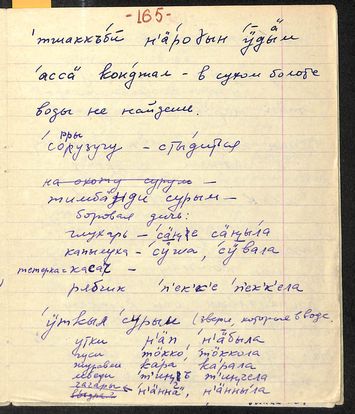 -165-
'тшаккъ̄бӣ н'а́родын ӱ̄ды̄м
'ассӓ конджал - в сухом болоте
воды не найдёшь.
'со̄рры
'со̄рузугу - стыдится
на охоту сурул -
тымба́ди сурым -
боровая дичь:
глухарь - 'сӓңңе сӓңыла
капылука - 'сӱ̄жа, 'сӱ̄вала
тетерка = касаҷ -
рябчик 'пек'к'е 'пек'к'ела
'ӱткыл 'сурым (звери, которые в воде
утки н'ап, н'а̄была
гуси то̄кко, то̄ккола
журавли кара, ка́рала
лебеди т'иңгъ, т'иңгела
гагары н'а̄нна, н'анныла